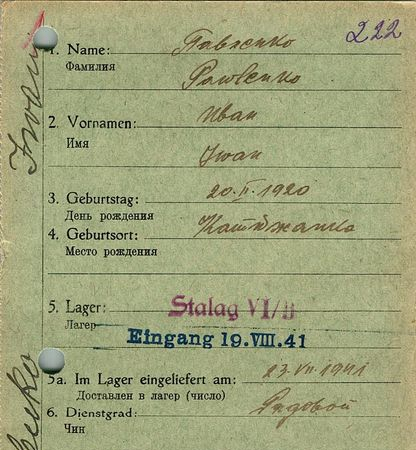 222
1. Name: Павленко
Фамилия
Pawlenko
2. Vornamen: Иван
Имя
Iwan
3. Geburtstag: 20. II. 1920
День рождения
4. Geburtsort:
Место рождения
5. Lager: Stalag VI/B
Лагер
Eingang 19. VIII. 41
5a. Im Lager eingeliefert am: 23. VII 1941
Доставлен в лагер (число)
6. Dienstgrad: Рядовой
Чин
Iwan